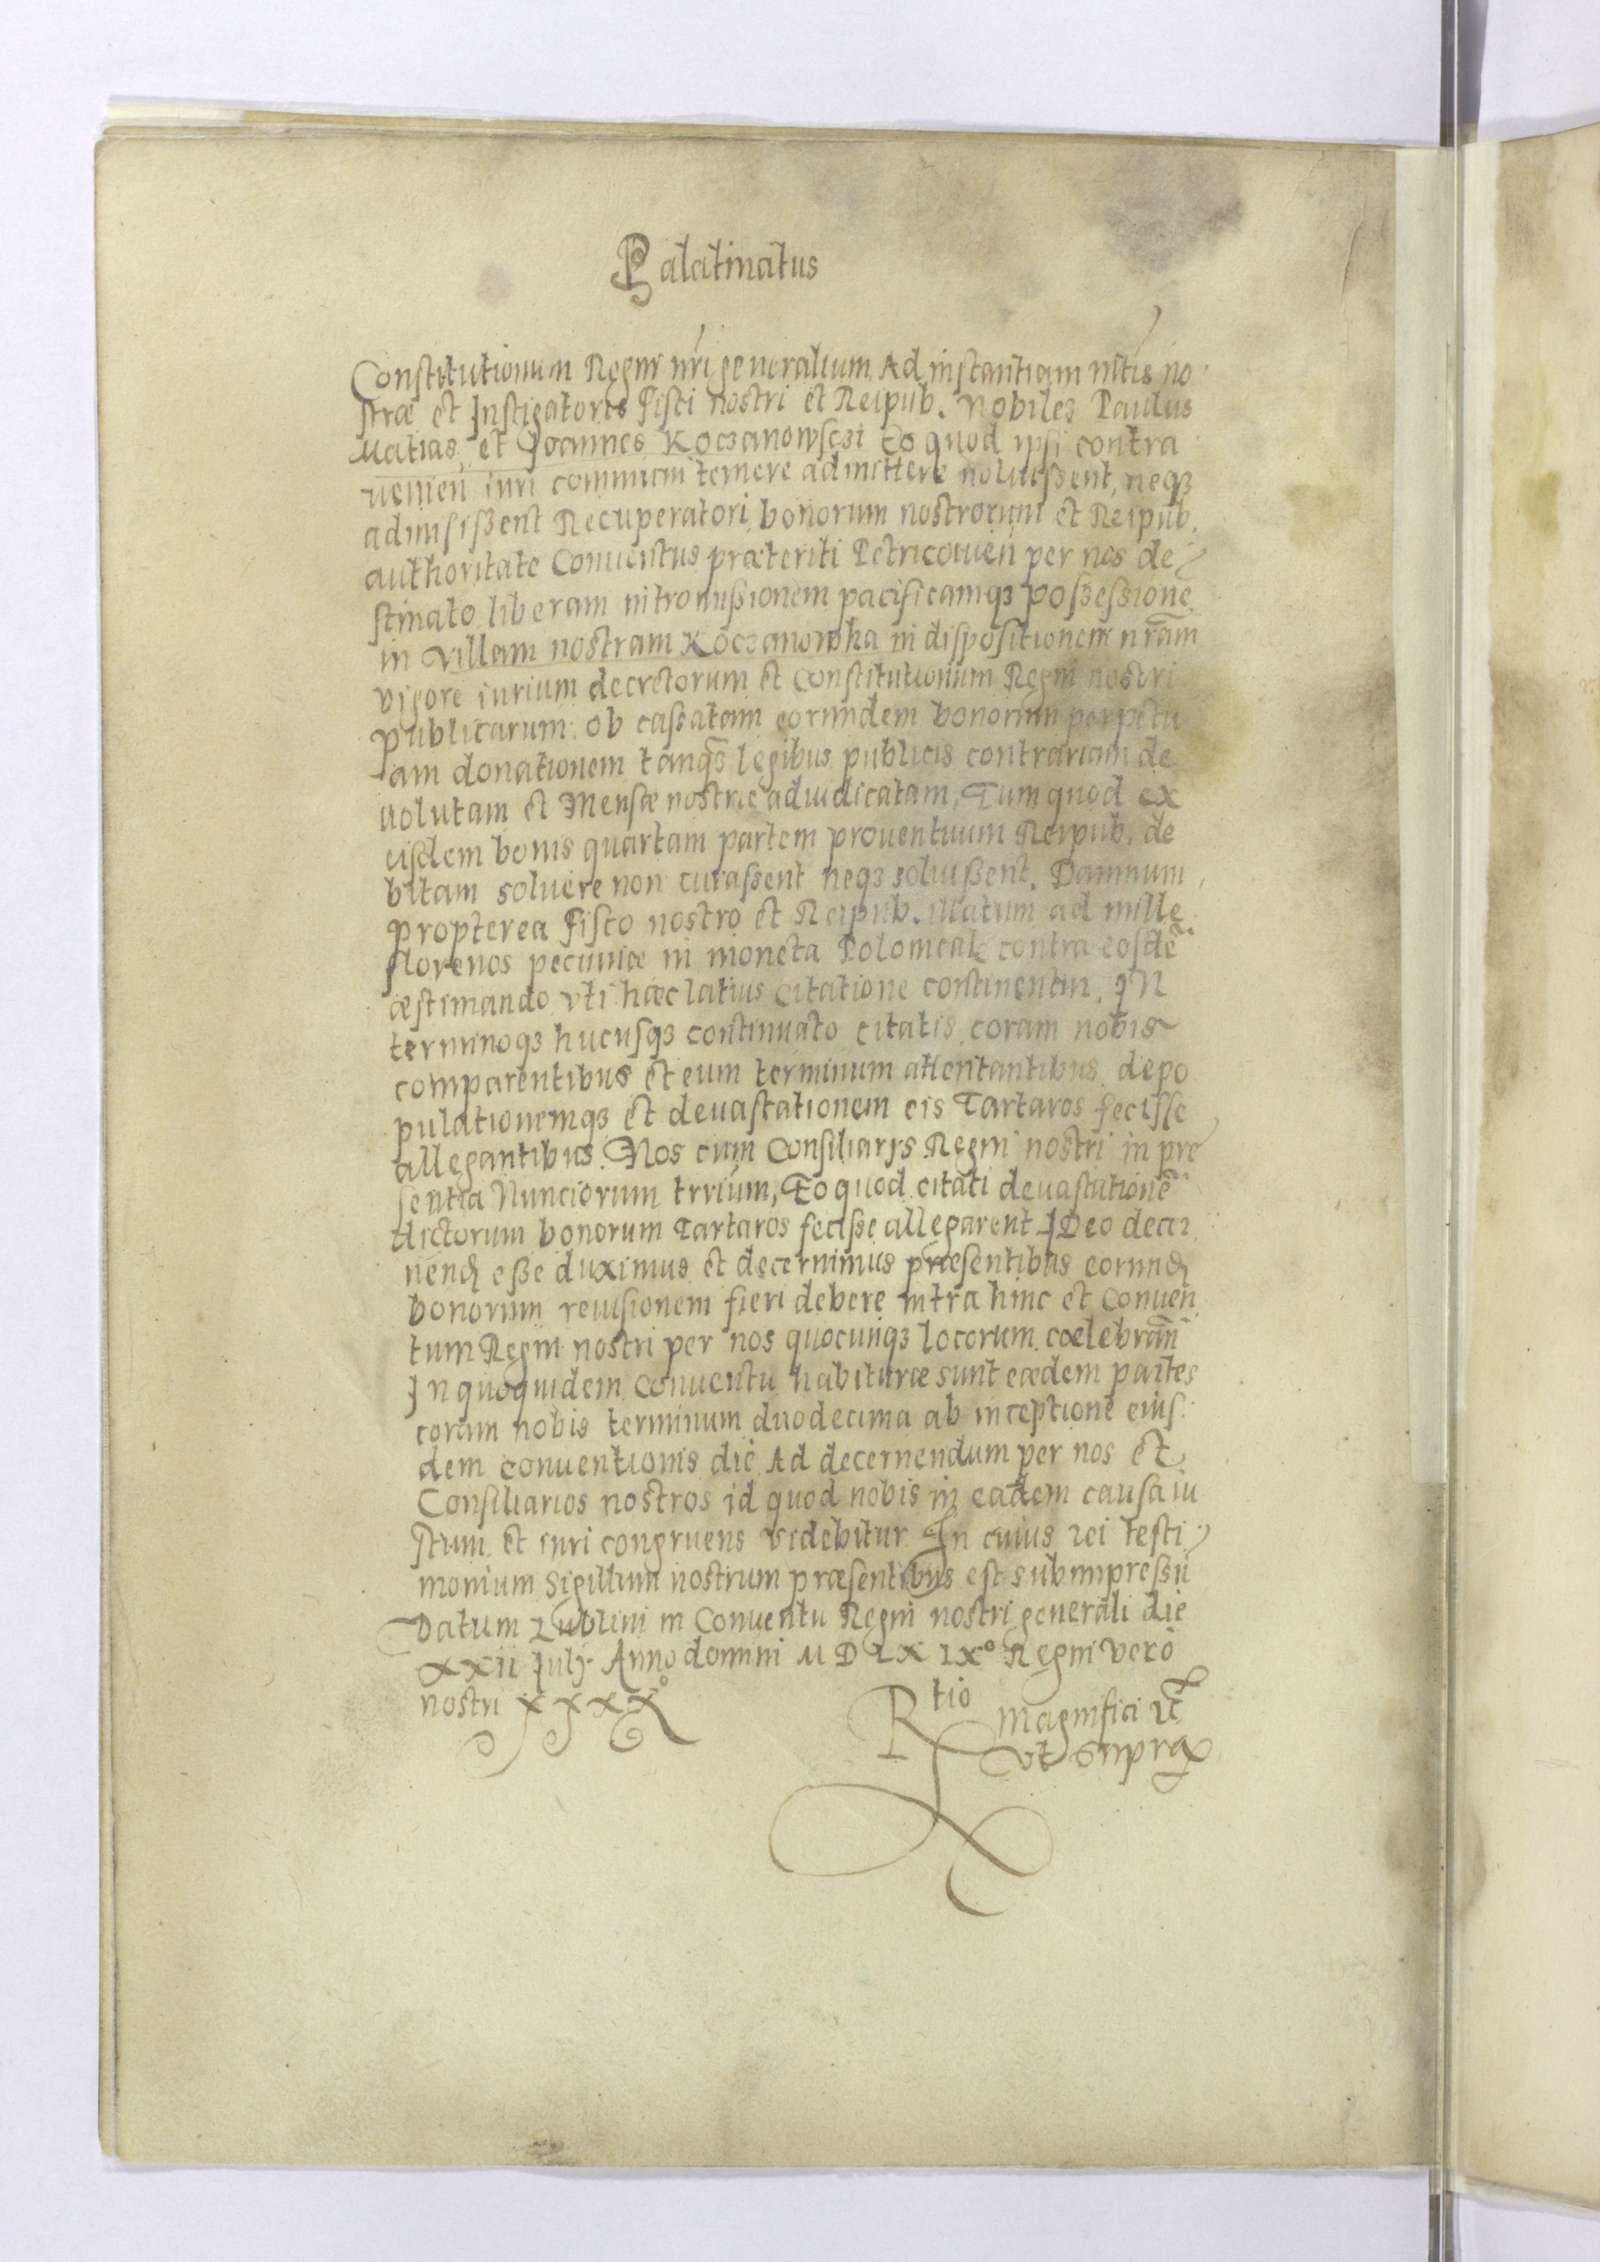 Palatinatus
Constitutionum Regni nri generalium Ad instantiam nttis no
stræ et Instigatoris Fisci nostri et Reipub. Nobiles Paulus
Matias, et Joannes Koczanowsczi Eo quod ipsi contra
uenien iuri communi temere admittere noluissent, neqз
admisissent Recuperatori bonorum nostrorum et Reipub.
authoritate Conuentus præteriti Petricouien per nos de
stinato liberam intromissionem pacificamqз possessione
in villam nostram Koczanowka in dispositionem nram
vigore iurium decretorum et Constitutionum Regni nostri
publicarum ob cassatam eorundem bonorum perpetu
am donationem tanqз legibus publicis contrariam de
uolutam et Mensæ nostræ adiudicatam, Tum quod ex
eisdem bonis quartam partem prouentuum Reipub. de
bitam soluere non curassent neqз soluissent. Damnum
propterea Fisco nostro et Reipub. illatum ad mille
florenos pecuniæ in moneta Polonicali contra eosdē
æstimando vti hæc latius Citatione continentur. IN
terminoqз hucusqз continuato citatis coram nobis
comparentibus et eum terminum attentantibus depo
pulationemqз et deuastationem eis Tartaros fecisse
allegantibus. Nos cum Consiliarijs Regni nostri in præ
sentia Nunciorum trrium, Eo quod citati deuastationē
dictorum bonorum Tartaros fecisse allegarent IDeo decer
nend esse duximus et decernimus præsentibus eorund
bonorum reuisionem fieri debere intra hinc et Conuen
tum Regni nostri per nos quocunqз locorum cœlebran
In quoquidem Conuentu habituræ sunt eædem partes
coram nobis terminum duodecima ab inceptione eius
dem conuentionis die Ad decernendum per nos et
Consiliarios nostros id quod nobis in eadem causa iu
stum et iuri congruens videbitur In cuius rei testi
monium Sigillum nostrum præsentibus est subimpressū
Datum Lublini in Conuentu Regni nostri generali die
XXII July Anno domini M D LX IXº Regni vero
nostri XXXXº
Rtio Magnifici ut
vt supra